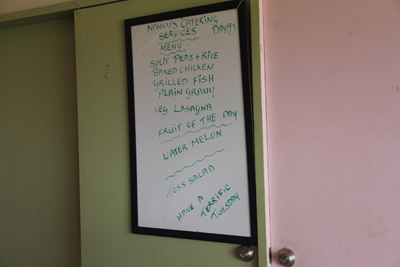 NANCY'S CATERING
SERVICES DAY 1
MENU
SPLIT PEAS + RICE
BAKED CHICKEN
GRILLED FISH
PLAIN GRAVY
VEG LASAGNA
FRUIT OF THE DAY
WATER MELON
TOSS SALAD
HAVE A
TERRIFIC
TUESDAY